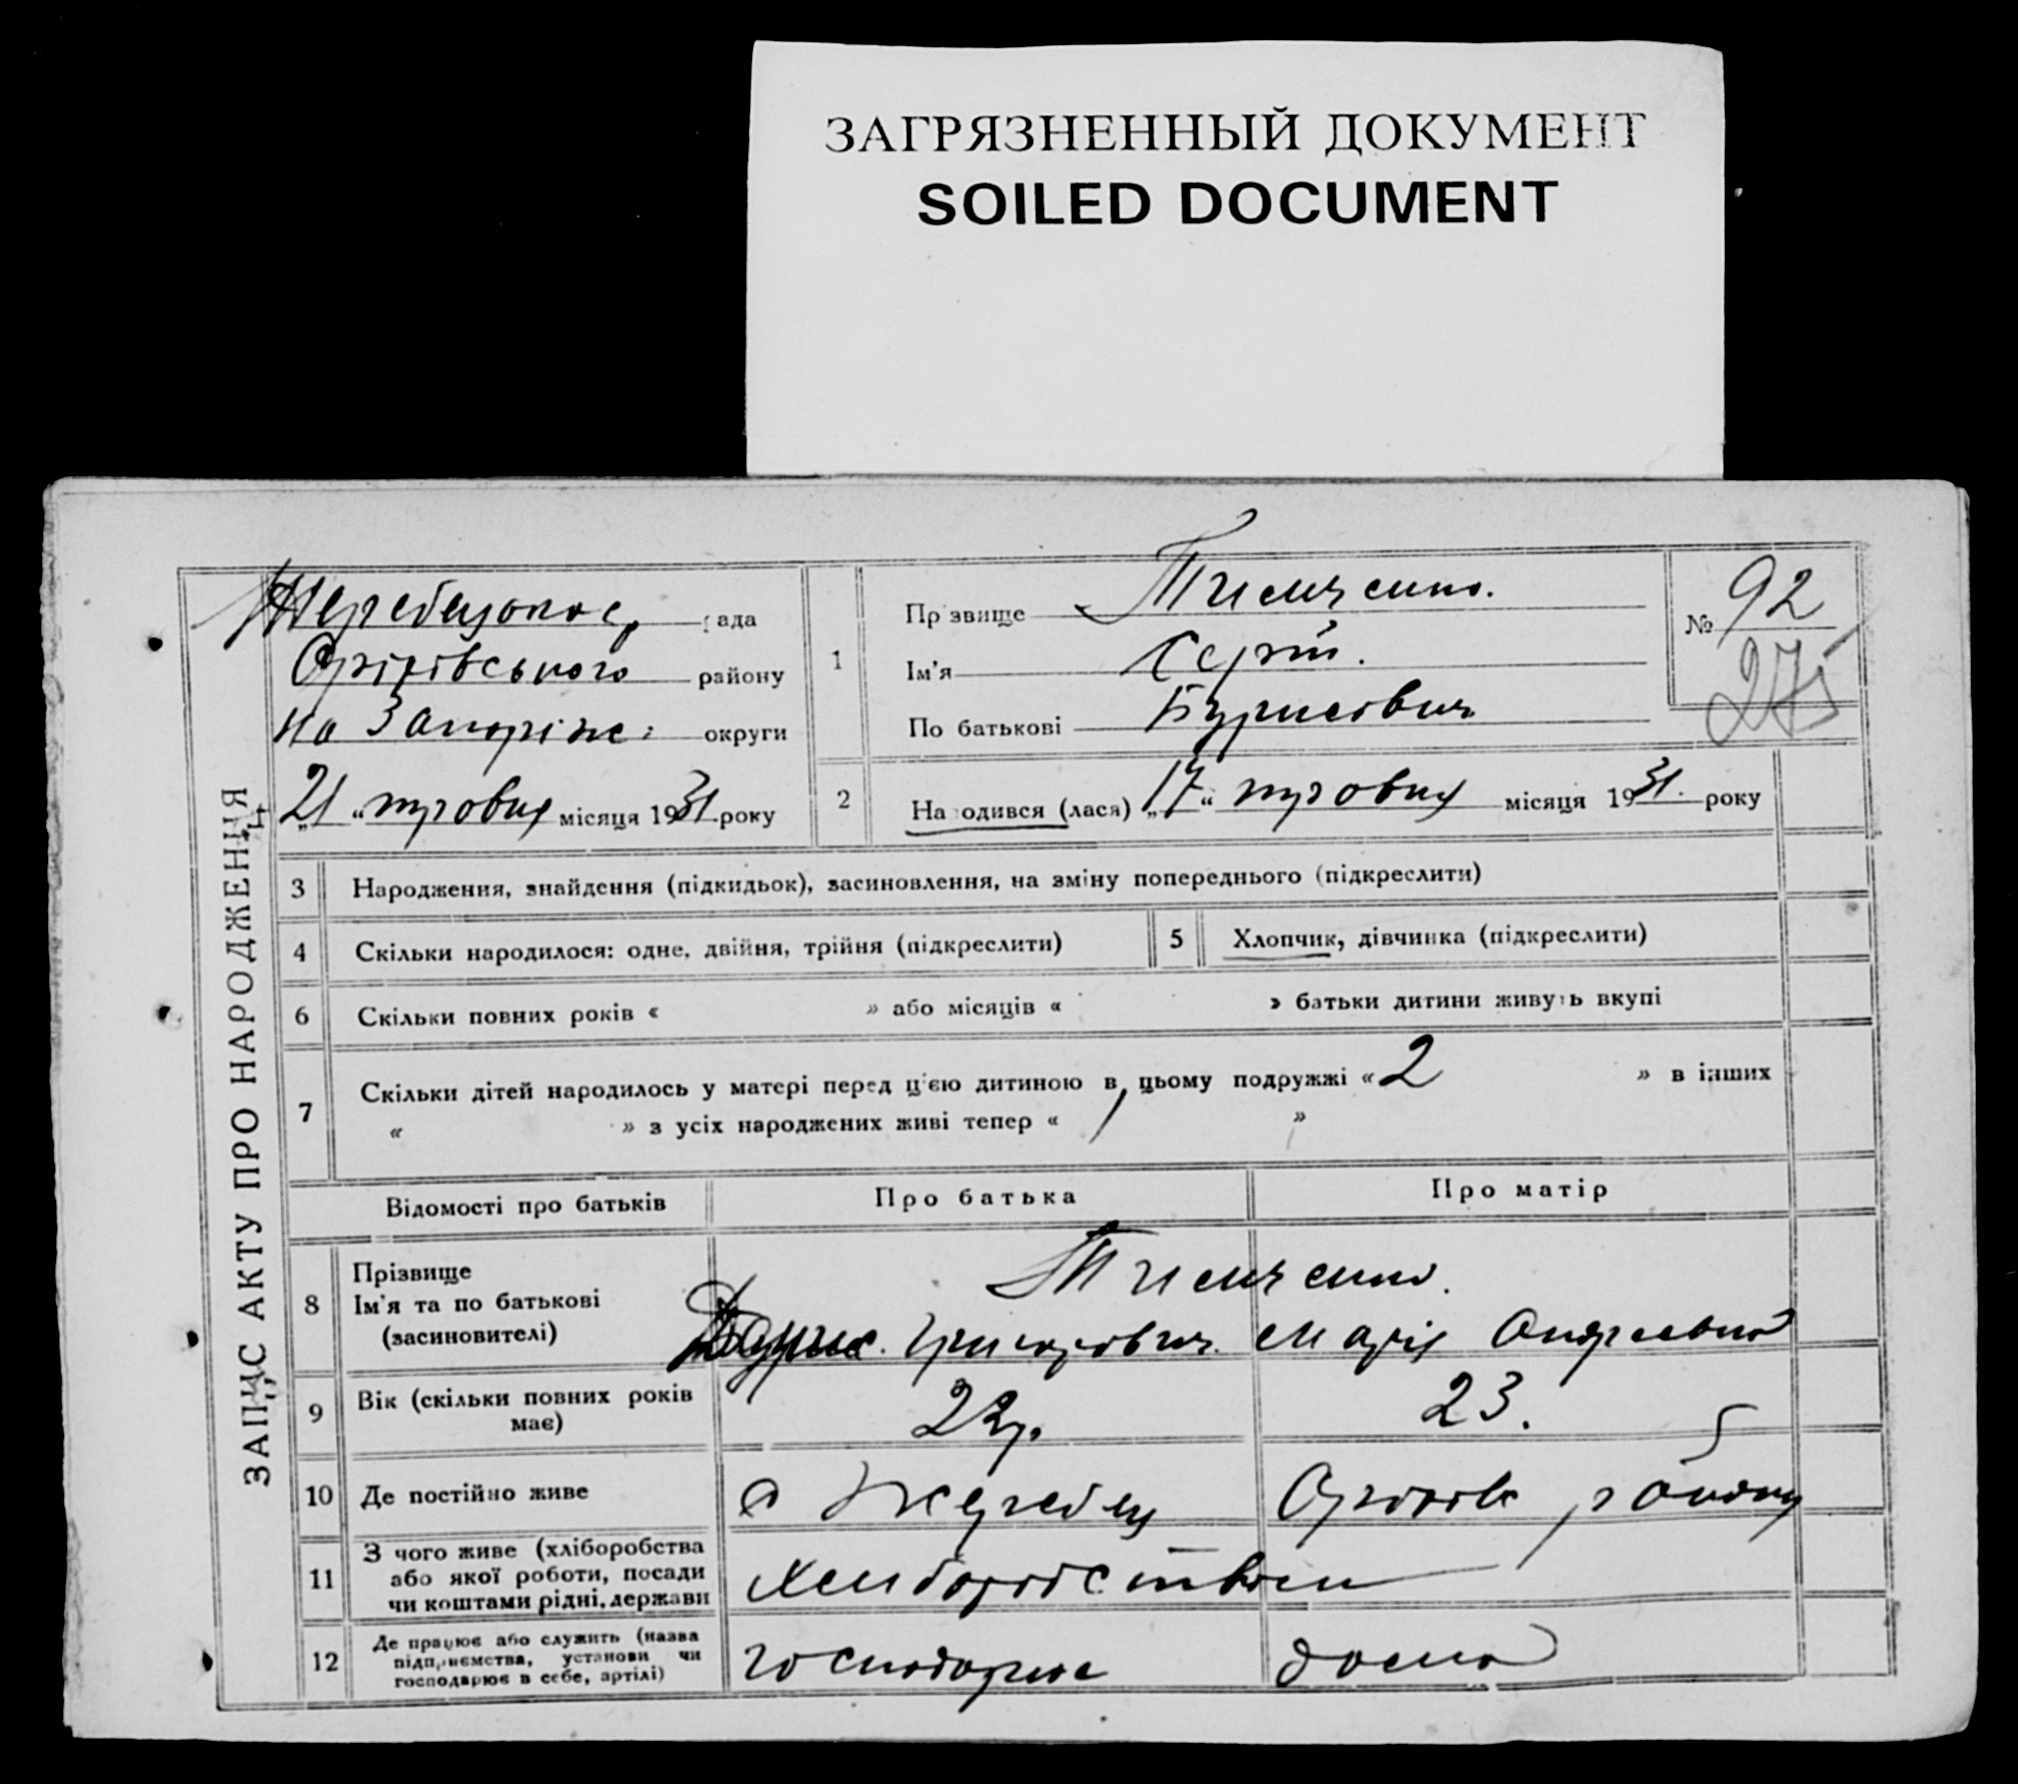 ЗАГРЯЗНЕННЫЙ ДОКУМЕНТ
SOILED DOCUMENT
ЗАПИС АКТУ ПРО НАРОДЖЕННЯ
рада
Оріхівського району
на Запоріж: округи
„21“ місяця 1931 року
1
Прізвище Тимченко.
Ім'я Сергій.
По батькові Борисович
№ 92
275
2 Народився (лася) „17“ місяця 1931. року
3 Народження, знайдення (підкидьок), засиновлення, на зміну попереднього (підкреслити)
4 Скільки народилося: одне, двійня, трійня (підкреслити)
5 Хлопчик, дівчинка (підкреслити)
6 Скільки повних років « » або місяців « » батьки дитини живуть вкупі
7 Скільки дітей народилось у матері перед ц'єю дитиною в цьому подружжі « 2 » в інших
« » з усіх народжених живі тепер « »
Відомості про батьків Про батька Про матір
8 Прізвище
Ім'я та по батькові
(засиновителі)
Тимченко.
Григорович. Марія Андреевна
9 Вік (скільки повних років має) 22р. 23.
10 Де постійно живе с Жеребец Оріхів району
11 З чого живе (хліборобства
або якої роботи, посади
чи коштами рідні, держави
хліборобством
12 Де працює або служить (назва
підприємства, установи чи
господарює в себе, артілі)
господарює дома